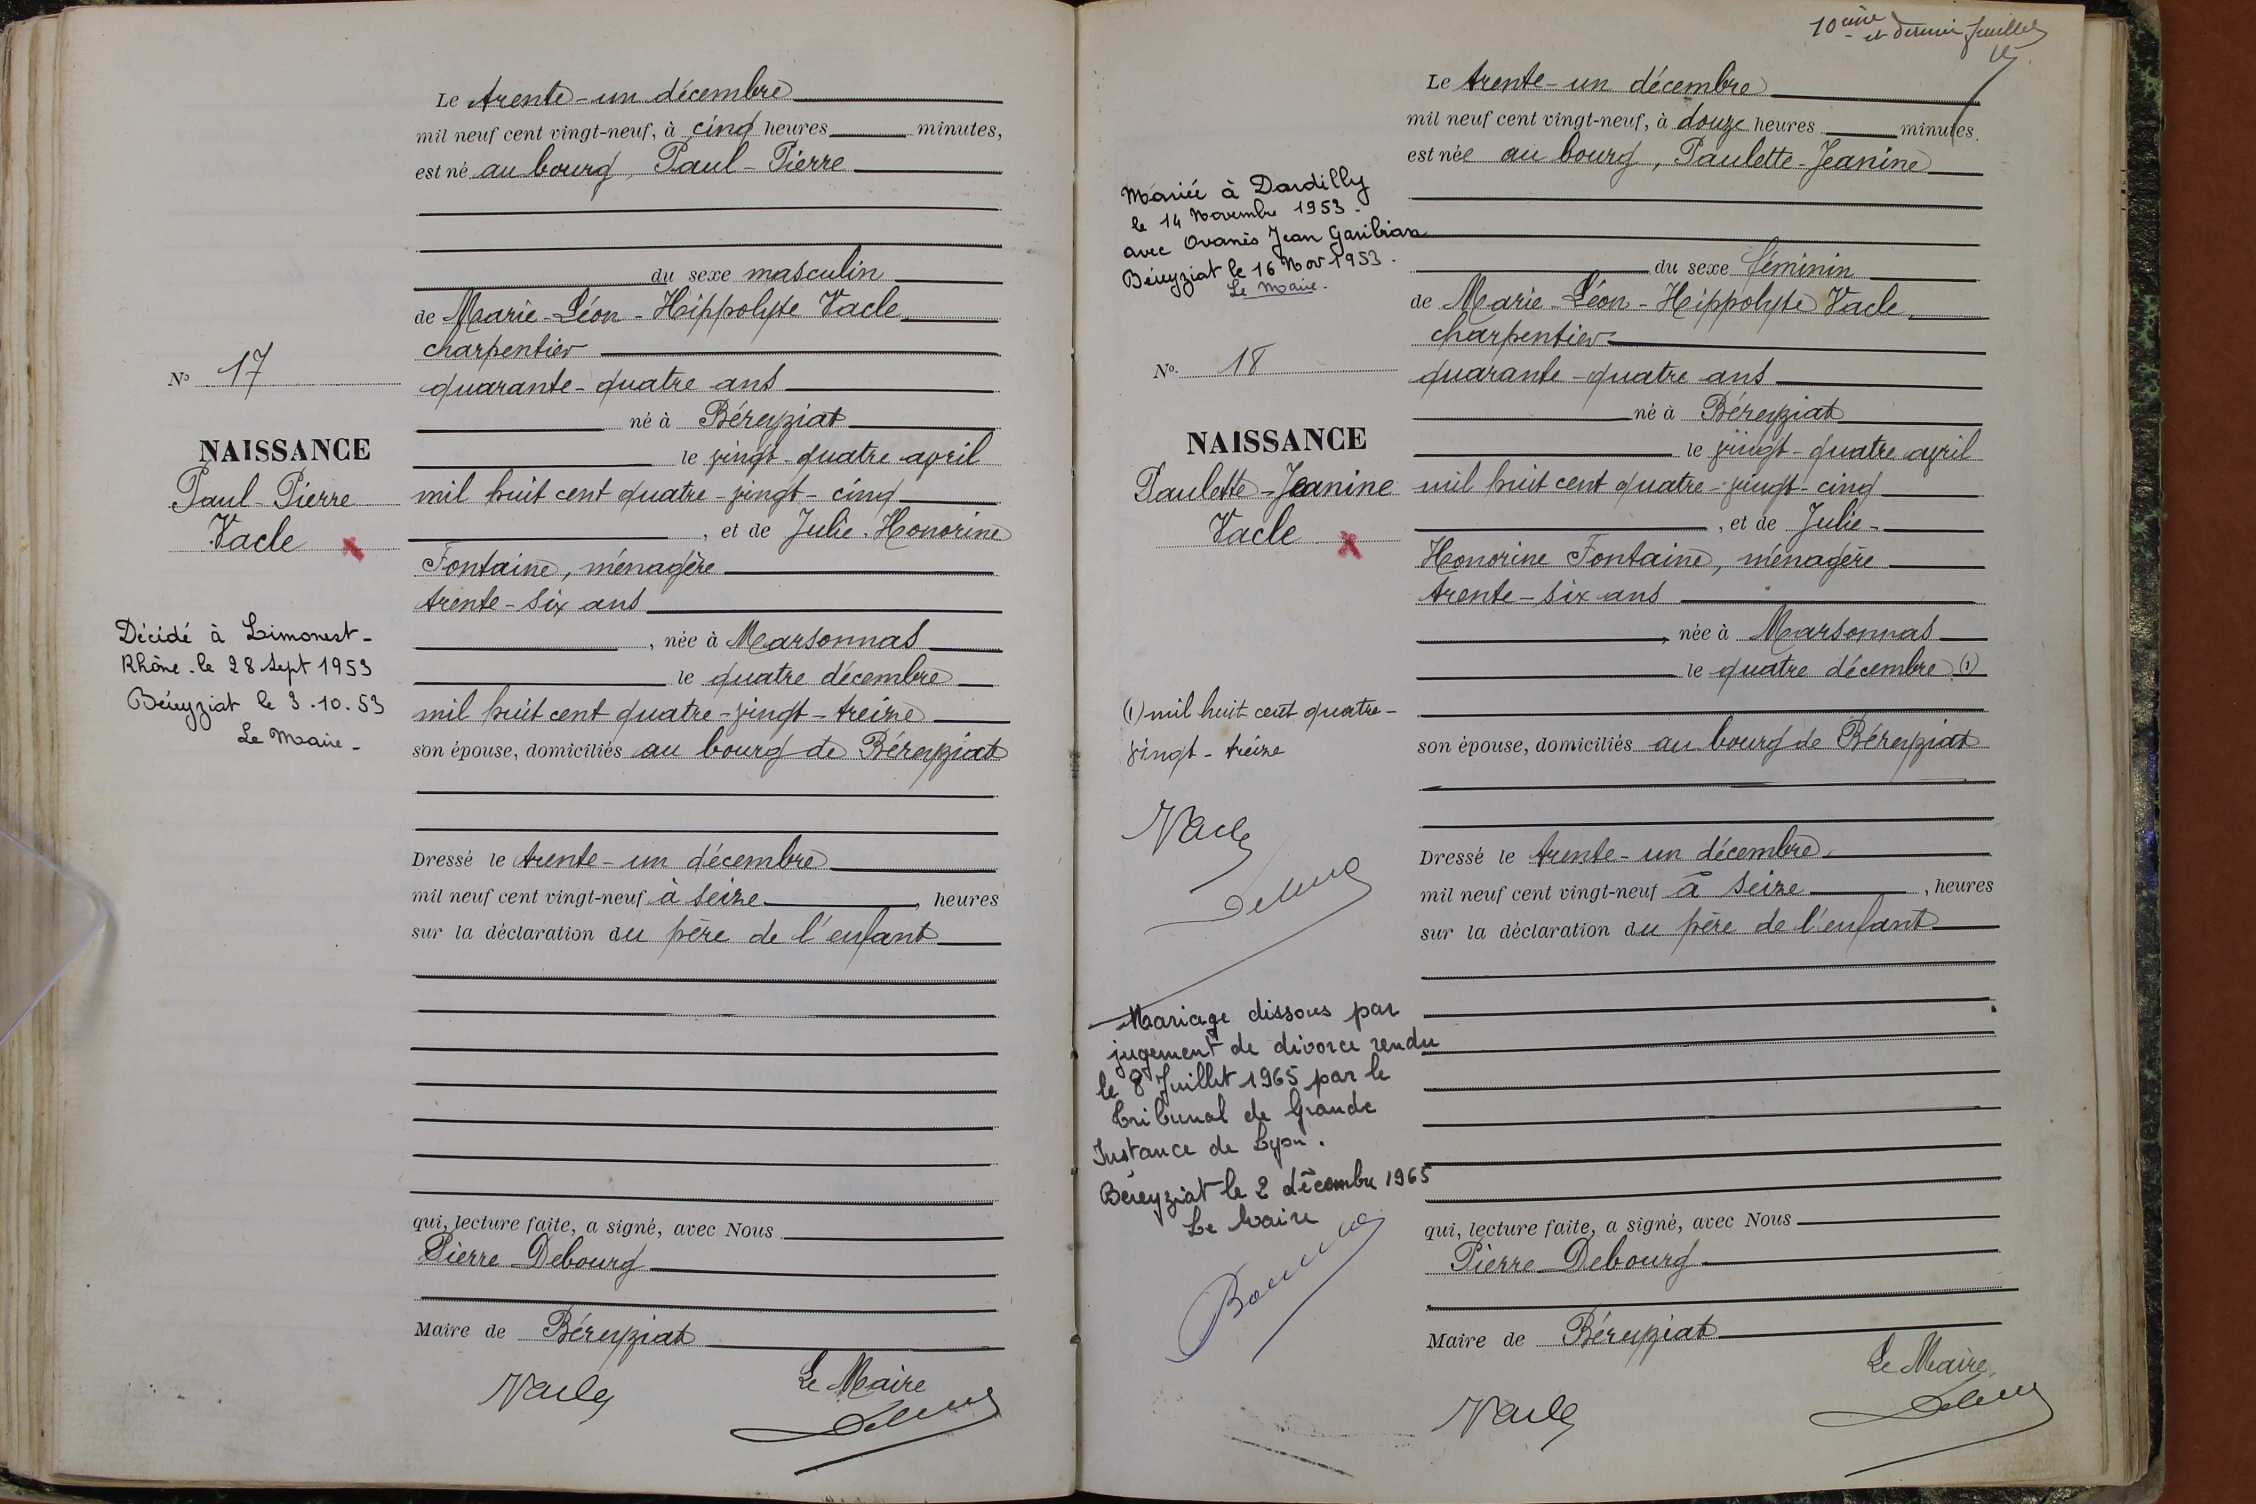 Le trente-un décembre
mil neuf cent vingt-neuf, à cinq heures minutes,
est né au bourg, Paul-Pierre
du sexe masculin
de Marie-Léon-Hippolyte Vacle
charpentier
quarante-quatre ans
né à Béreyziat
le vingt-quatre avril
mil huit cent quatre-vingt-cinq
, et de Julie-Honorine
Fontaine, ménagère
trente-six ans
, née à Marsonnas
le quatre décembre
mil huit cent quatre-vingt-treize
son épouse, domiciliés au bourg de Béreyziat
Dressé le trente-un décembre
mil neuf cent vingt-neuf à seize, heures
sur la déclaration du père de l'enfant
qui, lecture faite, a signé, avec Nous
Pierre Debourg
Maire de Béreyziat
Le Maire
Vacle
No 17
NAISSANCE
Paul-Pierre
Vacle
Décédé à Limonest-
Rhône. le 28 sept 1953
Béreyziat le 3.10.53
Le Maire-
10ème et dernier feuillet
Le trente-un décembre
mil neuf cent vingt-neuf, à douze heures minutes.
est née au bourg, Paulette-Jeanine
du sexe féminin
de Marie-Léon-Hippolyte Vacle
charpentier
quarante-quatre ans
né à Béreyziat
le vingt-quatre avril
mil huit cent quatre-vingt-cinq
, et de Julie-
Honorine Fontaine, ménagère
trente-six ans
, née à Marsonnas
le quatre décembre (1)
son épouse, domiciliés au bourg de Béreyziat
Dressé le trente-un décembre
mil neuf cent vingt-neuf à seize, heures
sur la déclaration du père de l'enfant
qui, lecture faite, a signé, avec Nous
Pierre Debourg
Maire de Béreyziat
Le Maire
Vacle
Mariée à Dardilly
le 14 Novembre 1953.
avec Ovanès Jean Garibian
Béreyziat le 16 Nov 1953.
Le Maire.
No. 18
NAISSANCE
Paulette-Jeanine
Vacle
(1) mil huit cent quatre-
vingt-treize
Vacle
Mariage dissous par
jugement de divorce rendu
le 8 Juillet 1965 par le
Tribunal de Grande
Instance de Lyon.
Béreyziat le 2 décembre 1965
Le Maire